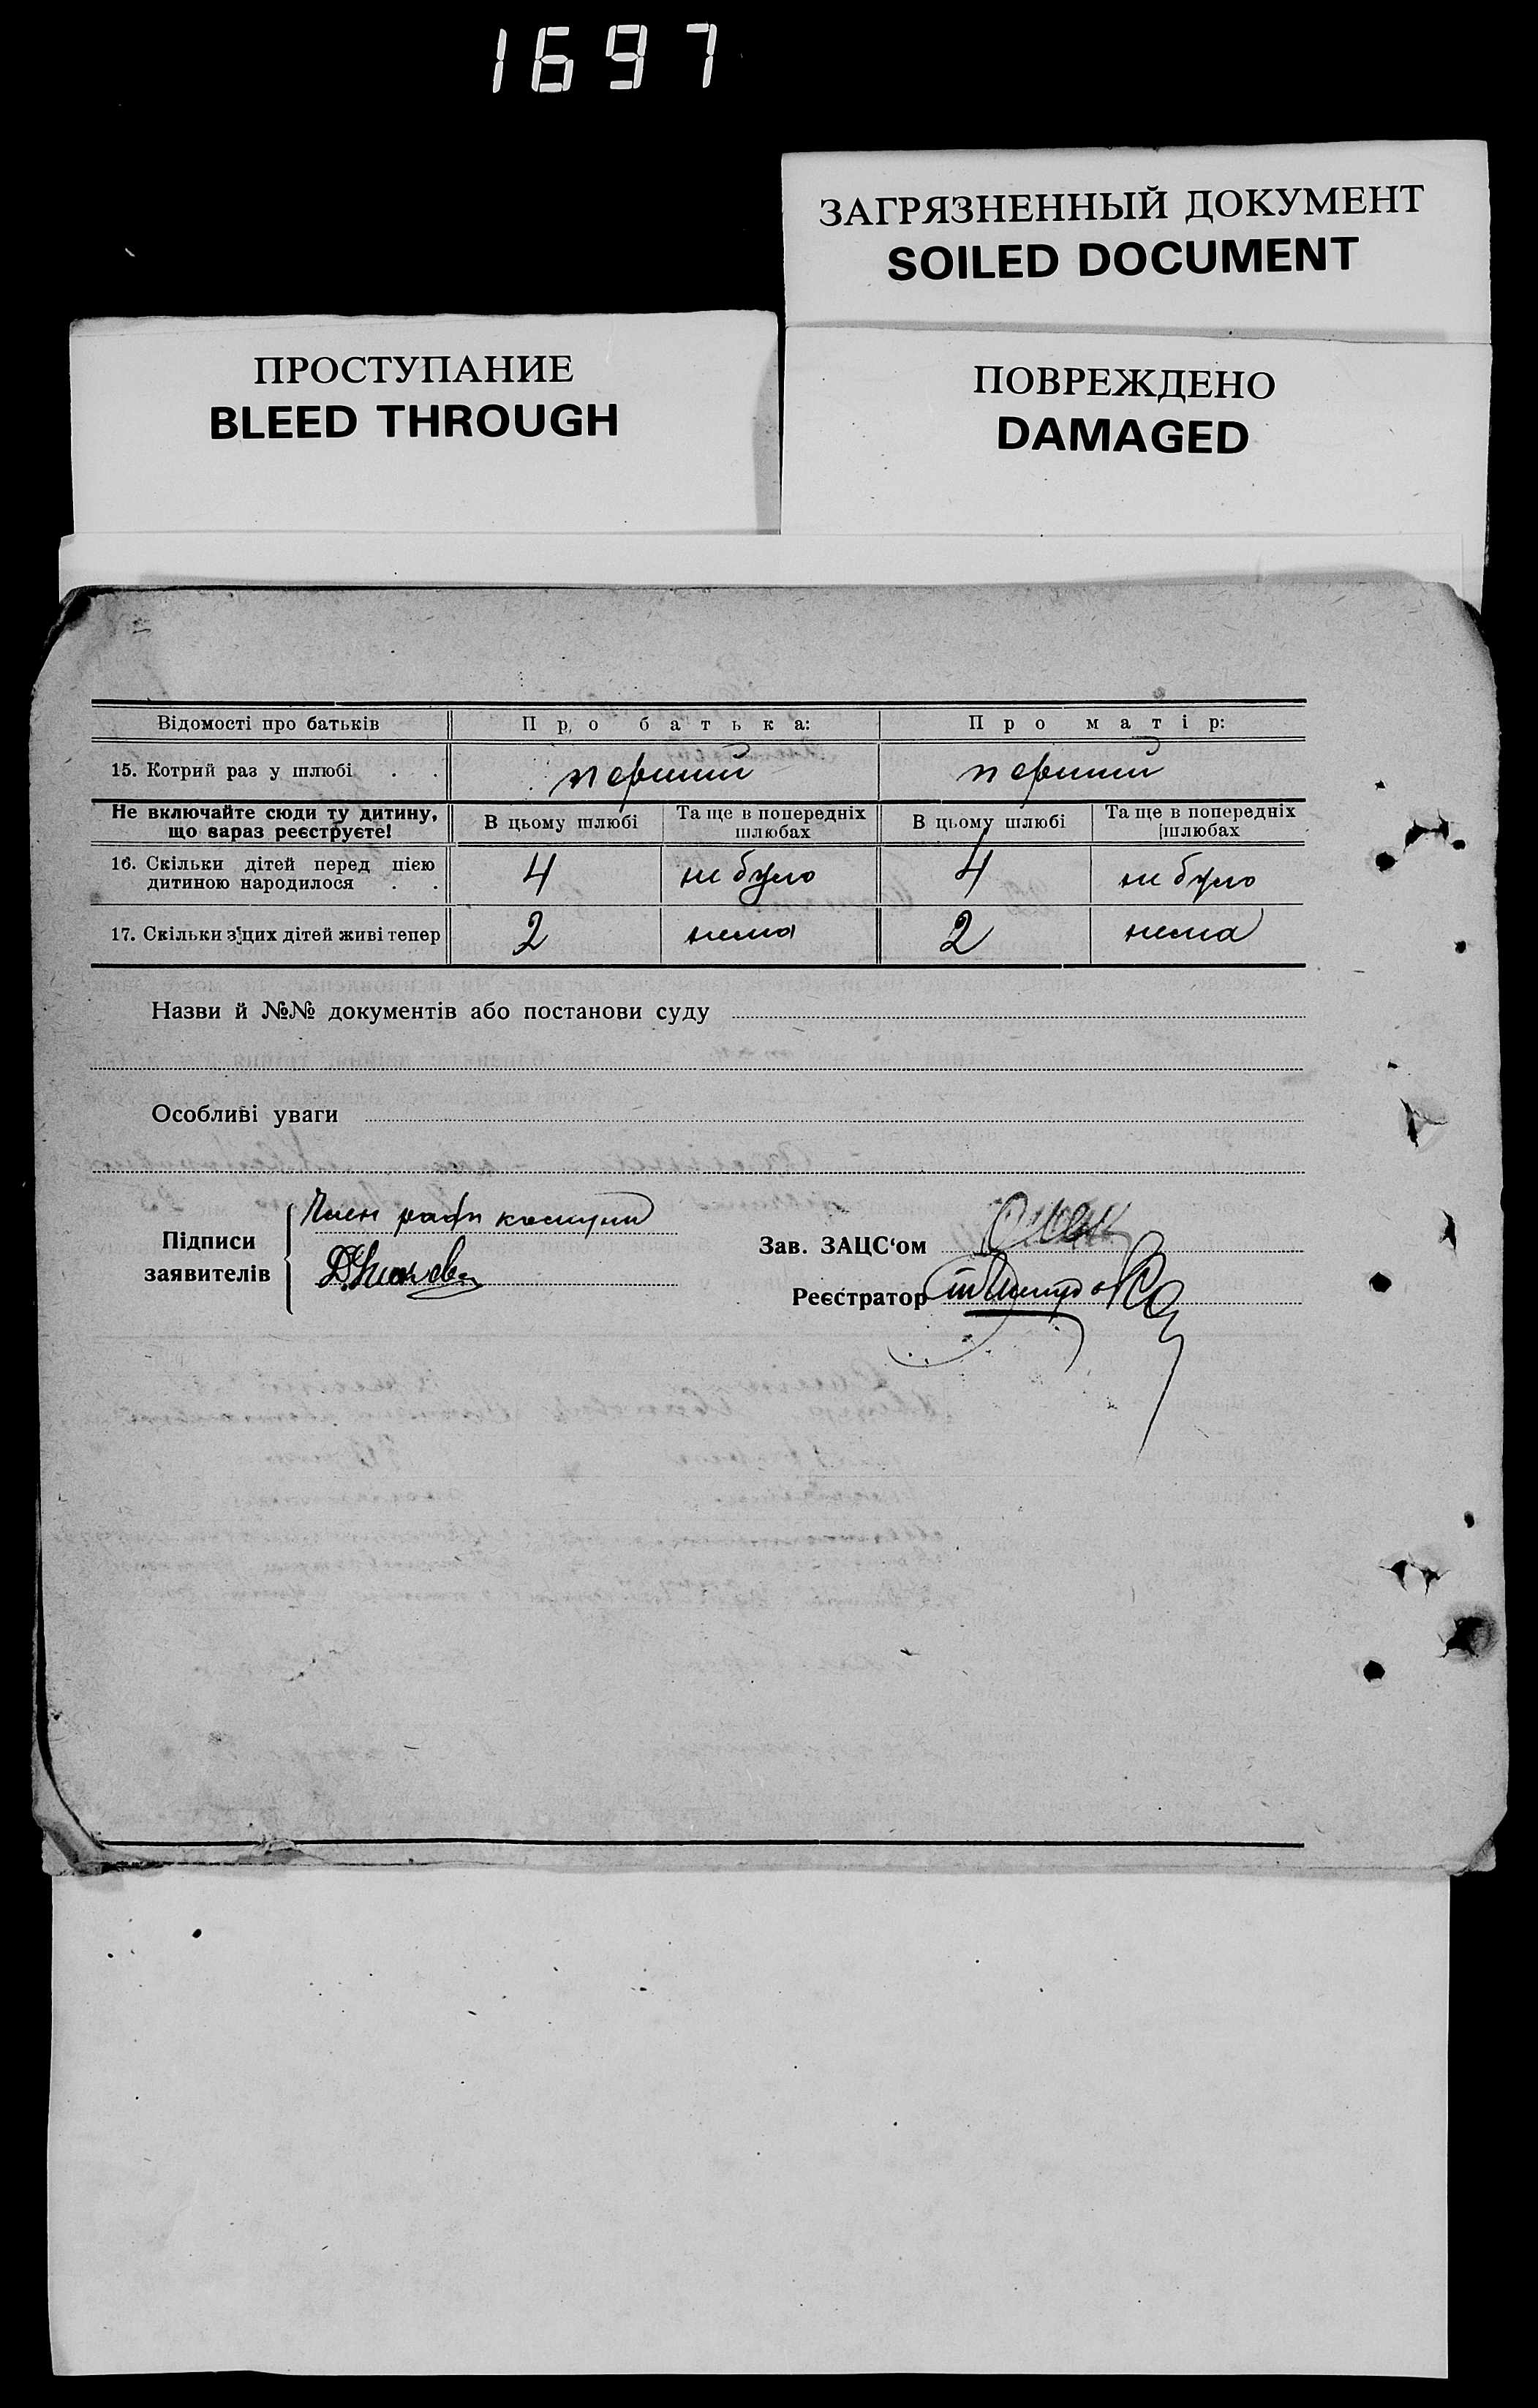 1697
ЗАГРЯЗНЕННЫЙ ДОКУМЕНТ
SOILED DOCUMENT
ПРОСТУПАНИЕ
BLEED THROUGH
ПОВРЕЖДЕНО
DAMAGED
Відомості про батьків Про батька: Про матір:
15. Котрий раз у шлюбі . . перший перший
Не включайте сюди ту дитину, що вараз реєструєте! В цьому шлюбі Та ще в попередніх шлюбах В цьому шлюбі Та ще в попередніх шлюбах
16. Скільки дітей перед цією дитиною народилося . . 4 не було 4 не було
17. Скільки з цих дітей живі тепер 2 нема 2 нема
Назви й №№ документів або постанови суду
Особливі уваги
Підписи заявителів
Член ради комуни
Зав. ЗАЦС‘ом
Реєстратор